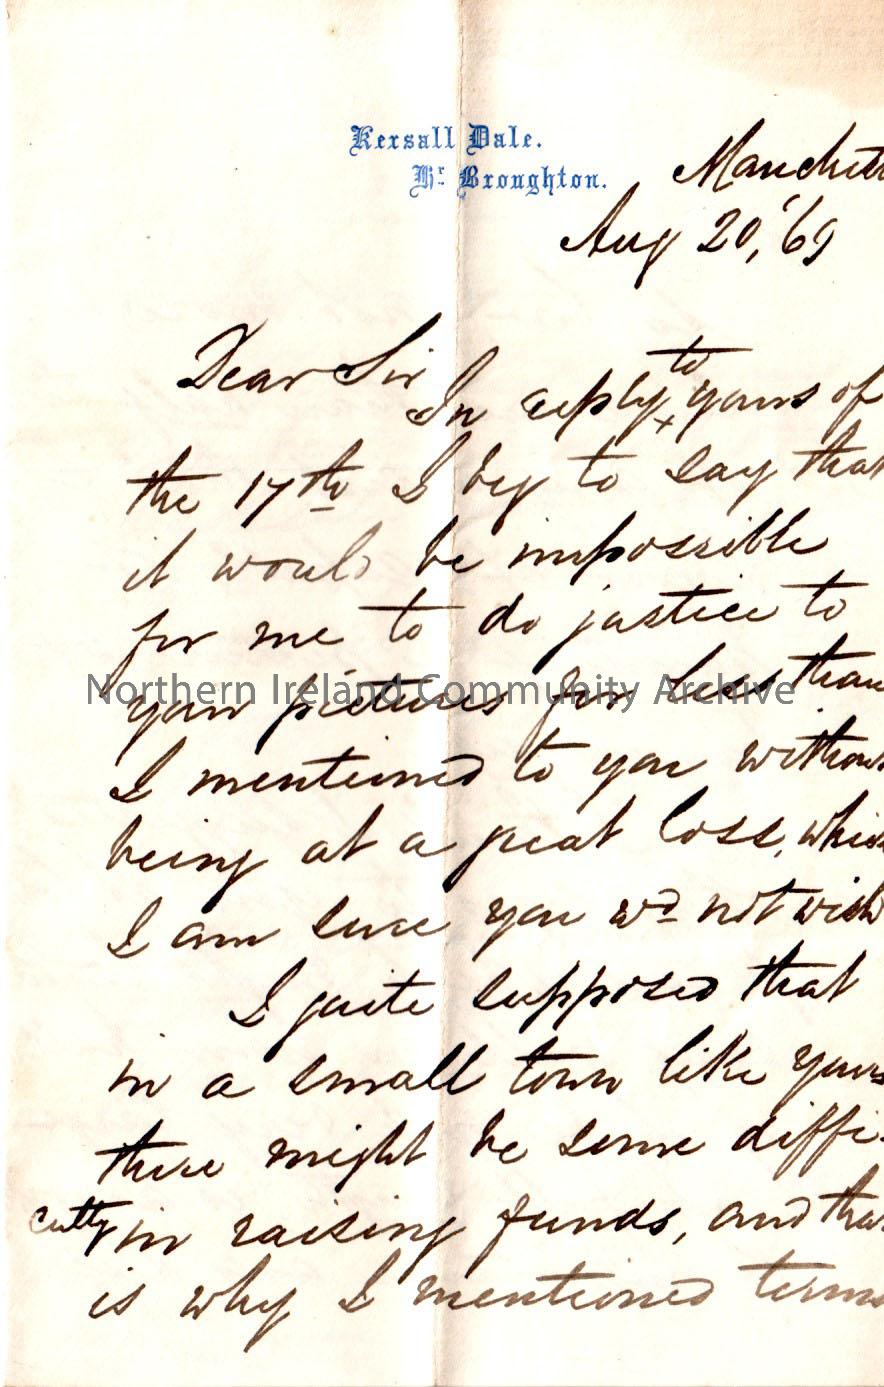 Kersall Dale.
Hr. Broughton.
Manchet
Aug 20, '69
Dear Sir
to
In reply x yours of
the 17th I beg to say that
it would be impossible
for me to do justice to
your pictures for less than
Northern Ireland Community Archive
I mentioned to you withou
being at a great loss, which
I am sure you wd not wish
I quite supposed that
in a small town like yours
there might be some diffi-
culty in raising funds, and tha
is why I mentioned terms